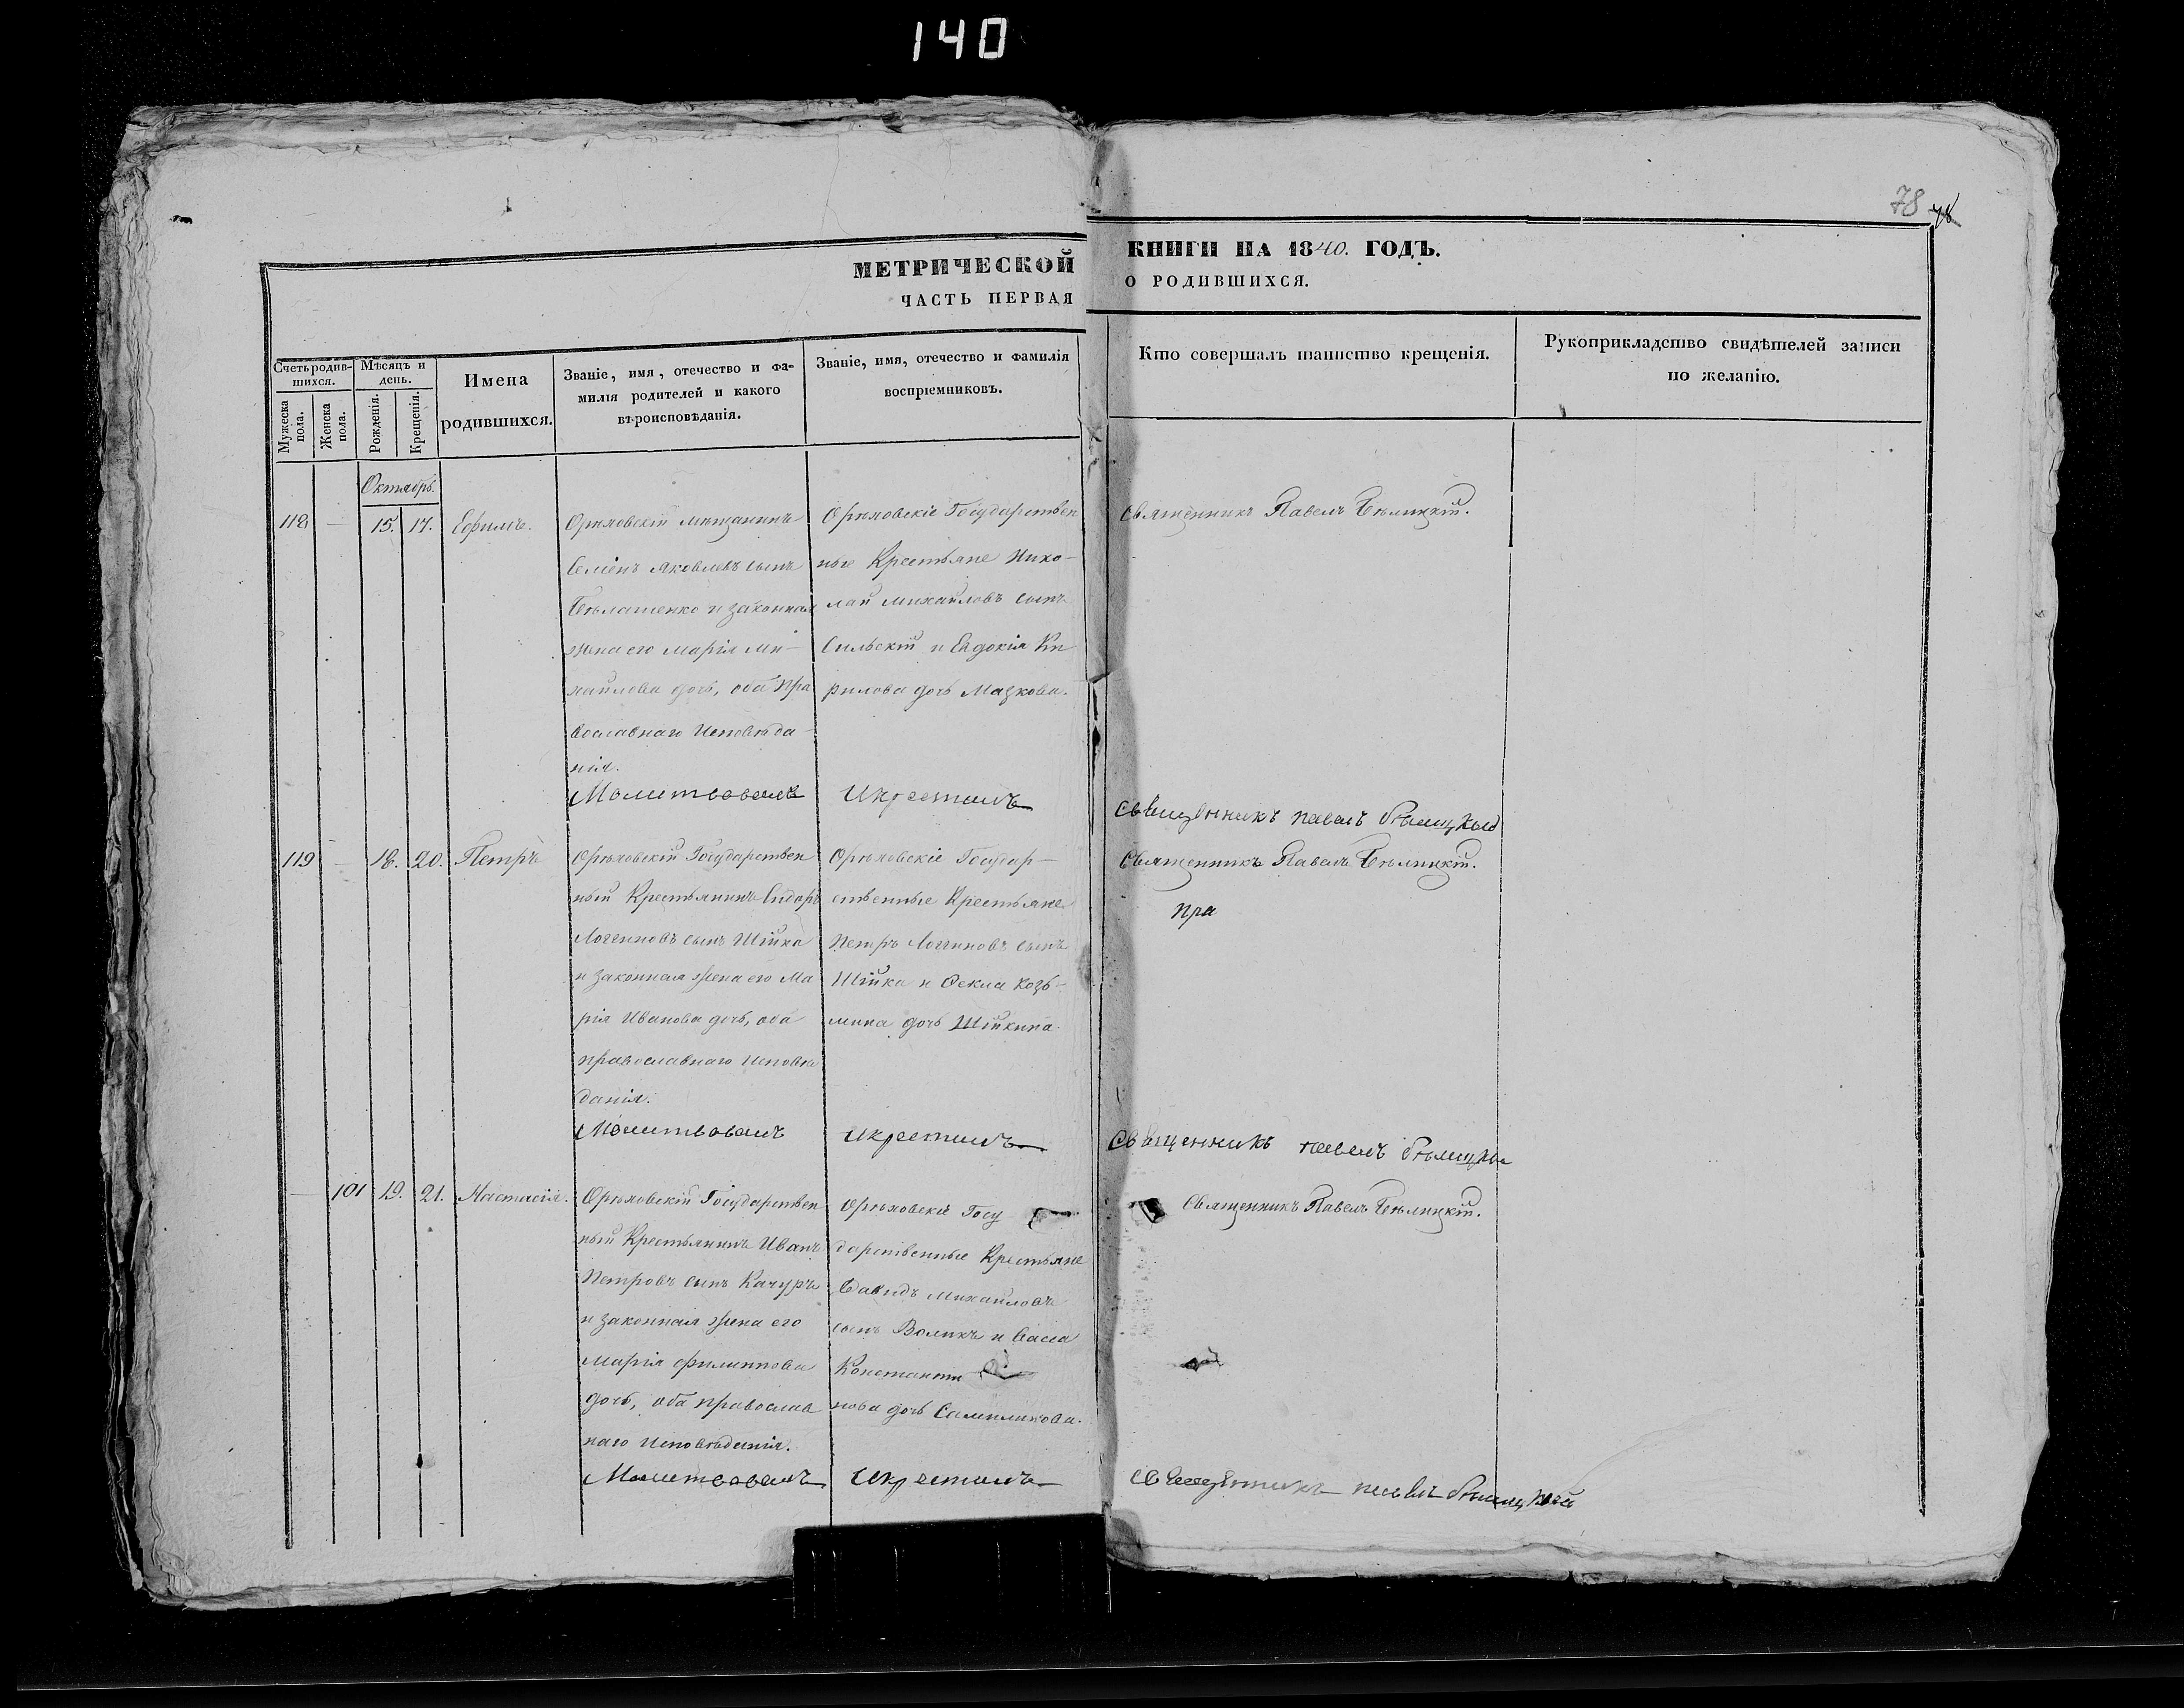 140
78 78
МЕТРИЧЕСКОЙ КНИГИ НА 1840. ГОДЪ.
ЧАСТЬ ПЕРВАЯ О РОДИВШИХСЯ.
Счетъ родив-
шихся.
Мужеска
пола.
Женска
пола.
Мѣсяцъ и
день.
Рожденія.
Крещенія.
Имена
родившихся.
Званіе, имя, отечество и фа-
милія родителей и какого
вѣроисповѣданія.
Званіе, имя, отечество и фамилія
воспріемниковъ.
Кто совершалъ таинство крещенія.
Рукоприкладство свидѣтелей записи
по желанію.
Октябрь.
118 — 15. 17. Ефимъ.
Орѣховскій мѣщанинъ
Семенъ Яковлевъ сынъ
Бѣлашенко и законная
жена его Марія Ми-
хайлова дочь, оба пра
вославнаго Исповѣда-
нія.
Молитвовалъ
Орѣховскіе Государствен
ные Крестьяне Нико-
лай Михайловъ сынъ
Сильскій и Евдокія Ки
рилова дочь Мазкова.
И крестилъ
Священникъ Павелъ Бѣлицкій.
Священникъ Павелъ Бѣлицкый
119 — 18. 20. Петръ
Орѣховскій Государствен
ный Крестьянинъ Сидоръ
Логгиновъ сынъ Шійка
и законная жена его Ма
рія Иванова дочь, оба
православнаго Исповѣ
данія.
Молитвовалъ
Орѣховскіе Государ-
ственные Крестьяне
Петръ Логгиновъ сынъ
Шійка и Ѳекла Козь-
мина дочь Шійкина.
И крестилъ
Священникъ Павелъ Бѣлицкій.
Пра
Священникъ Павелъ Бѣлицкы
— 101 19. 21. Настасія.
Орѣховскій Государствен
ный Крестьянинъ Иванъ
Петровъ сынъ Качуръ
и законная жена его
Марія Филиппова
дочь, оба православ
наго Исповѣданія.
Молитвовалъ
Орѣховскіе Госу
дарственные Крестьяне
Давидъ Михайловъ
сынъ Воликъ и Васса
Константи
нова дочь
И крестилъ
Священникъ Павелъ Бѣлицкій.
Священникъ Павелъ Бѣлицкый